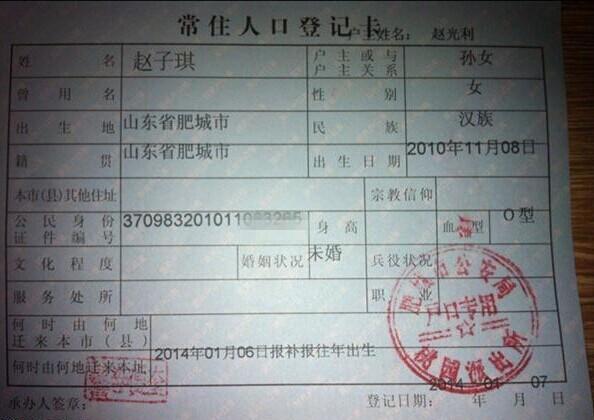 常住人口登记卡
户主姓名： 赵光利
姓 名 赵子琪 户主或与户主关系 孙女
曾用名 性别 女
出生地 山东省肥城市 民族 汉族
籍贯 山东省肥城市 出生日期 2010年11月08日
本市(县)其他住址 宗教信仰
公民身份证件编号 370983201011 身高 血型 O 型
文化程度 婚姻状况 未婚 兵役状况
服务处所 职业
何时由何地迁来本市(县)
何时由何地迁来本址 2014年01月06日报补报往年出生
承办人签章： 登记日期： 2014 年 01 月 07 日
户口专用